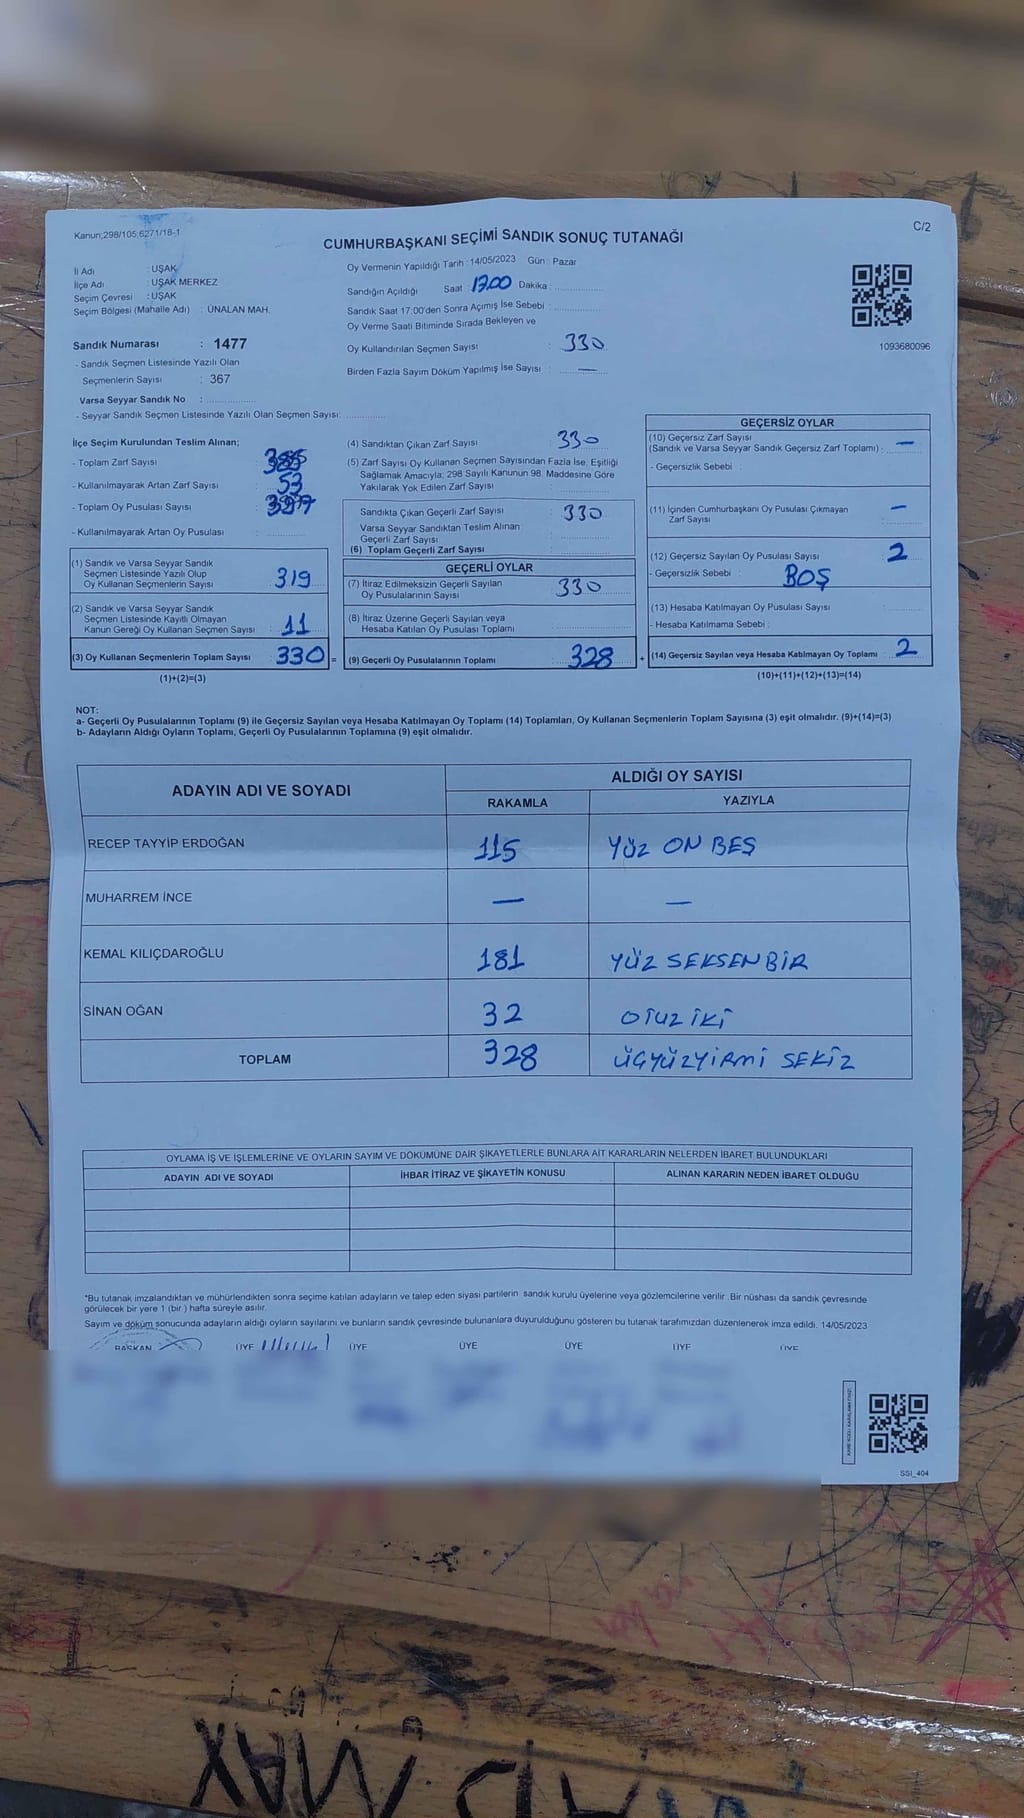 Kanun;298/105;6271/18-1
C/2
CUMHURBAŞKANI SEÇİMİ SANDIK SONUÇ TUTANAĞI
İl Adı : UŞAK
İlçe Adı : UŞAK MERKEZ
Seçim Çevresi : UŞAK
Seçim Bölgesi (Mahalle Adı) : ÜNALAN MAH.
Sandık Numarası : 1477
- Sandık Seçmen Listesinde Yazılı Olan
Seçmenlerin Sayısı : 367
Varsa Seyyar Sandık No :
- Seyyar Sandık Seçmen Listesinde Yazılı Olan Seçmen Sayısı:
Oy Vermenin Yapıldığı Tarih : 14/05/2023 Gün : Pazar
Sandığın Açıldığı Saat : 17.00 Dakika :
Sandık Saat 17:00'den Sonra Açımış İse Sebebi :
Oy Verme Saati Bitiminde Sırada Bekleyen ve
Oy Kullandırılan Seçmen Sayısı : 330
Birden Fazla Sayım Döküm Yapılmış İse Sayısı : —
1093680096
İlçe Seçim Kurulundan Teslim Alınan;
- Toplam Zarf Sayısı :
- Kullanılmayarak Artan Zarf Sayısı : 53
- Toplam Oy Pusulası Sayısı :
- Kullanılmayarak Artan Oy Pusulası :
(1) Sandık ve Varsa Seyyar Sandık
Seçmen Listesinde Yazılı Olup
Oy Kullanan Seçmenlerin Sayısı : 319
(2) Sandık ve Varsa Seyyar Sandık
Seçmen Listesinde Kayıtlı Olmayan
Kanun Gereği Oy Kullanan Seçmen Sayısı : 11
(3) Oy Kullanan Seçmenlerin Toplam Sayısı : 330 =
(1)+(2)=(3)
(4) Sandıktan Çıkan Zarf Sayısı : 330
(5) Zarf Sayısı Oy Kullanan Seçmen Sayısından Fazla İse, Eşitliği
Sağlamak Amacıyla; 298 Sayılı Kanunun 98. Maddesine Göre
Yakılarak Yok Edilen Zarf Sayısı :
Sandıkta Çıkan Geçerli Zarf Sayısı : 330
Varsa Seyyar Sandıktan Teslim Alınan
Geçerli Zarf Sayısı :
(6) Toplam Geçerli Zarf Sayısı :
GEÇERLİ OYLAR
(7) İtiraz Edilmeksizin Geçerli Sayılan
Oy Pusulalarının Sayısı : 330
(8) İtiraz Üzerine Geçerli Sayılan veya
Hesaba Katılan Oy Pusulası Toplamı :
(9) Geçerli Oy Pusulalarının Toplamı : 328 +
GEÇERSİZ OYLAR
(10) Geçersiz Zarf Sayısı
(Sandık ve Varsa Seyyar Sandık Geçersiz Zarf Toplamı) : —
- Geçersizlik Sebebi :
(11) İçinden Cumhurbaşkanı Oy Pusulası Çıkmayan
Zarf Sayısı : —
(12) Geçersiz Sayılan Oy Pusulası Sayısı : 2
- Geçersizlik Sebebi : BOŞ
(13) Hesaba Katılmayan Oy Pusulası Sayısı :
- Hesaba Katılmama Sebebi :
(14) Geçersiz Sayılan veya Hesaba Katılmayan Oy Toplamı : 2
(10)+(11)+(12)+(13)=(14)
NOT:
a- Geçerli Oy Pusulalarının Toplamı (9) ile Geçersiz Sayılan veya Hesaba Katılmayan Oy Toplamı (14) Toplamları, Oy Kullanan Seçmenlerin Toplam Sayısına (3) eşit olmalıdır. (9)+(14)=(3)
b- Adayların Aldığı Oyların Toplamı, Geçerli Oy Pusulalarının Toplamına (9) eşit olmalıdır.
ADAYIN ADI VE SOYADI
ALDIĞI OY SAYISI
RAKAMLA YAZIYLA
RECEP TAYYİP ERDOĞAN 115 YÜZ ON BEŞ
MUHARREM İNCE — —
KEMAL KILIÇDAROĞLU 181 YÜZ SEKSEN BİR
SİNAN OĞAN 32 OTUZ İKİ
TOPLAM 328 ÜÇYÜZYİRMİ SEKİZ
OYLAMA İŞ VE İŞLEMLERİNE VE OYLARIN SAYIM VE DÖKÜMÜNE DAİR ŞİKAYETLERLE BUNLARA AİT KARARLARIN NELERDEN İBARET BULUNDUKLARI
ADAYIN ADI VE SOYADI İHBAR İTİRAZ VE ŞİKAYETİN KONUSU ALINAN KARARIN NEDEN İBARET OLDUĞU
*Bu tutanak imzalandıktan ve mühürlendikten sonra seçime katılan adayların ve talep eden siyasi partilerin sandık kurulu üyelerine veya gözlemcilerine verilir. Bir nüshası da sandık çevresinde
görülecek bir yere 1 (bir) hafta süreyle asılır.
Sayım ve döküm sonucunda adayların aldığı oyların sayılarını ve bunların sandık çevresinde bulunanlara duyurulduğunu gösteren bu tutanak tarafımızdan düzenlenerek imza edildi. 14/05/2023
BAŞKAN ÜYE ÜYE ÜYE ÜYE ÜYE ÜYE
SSİ_404